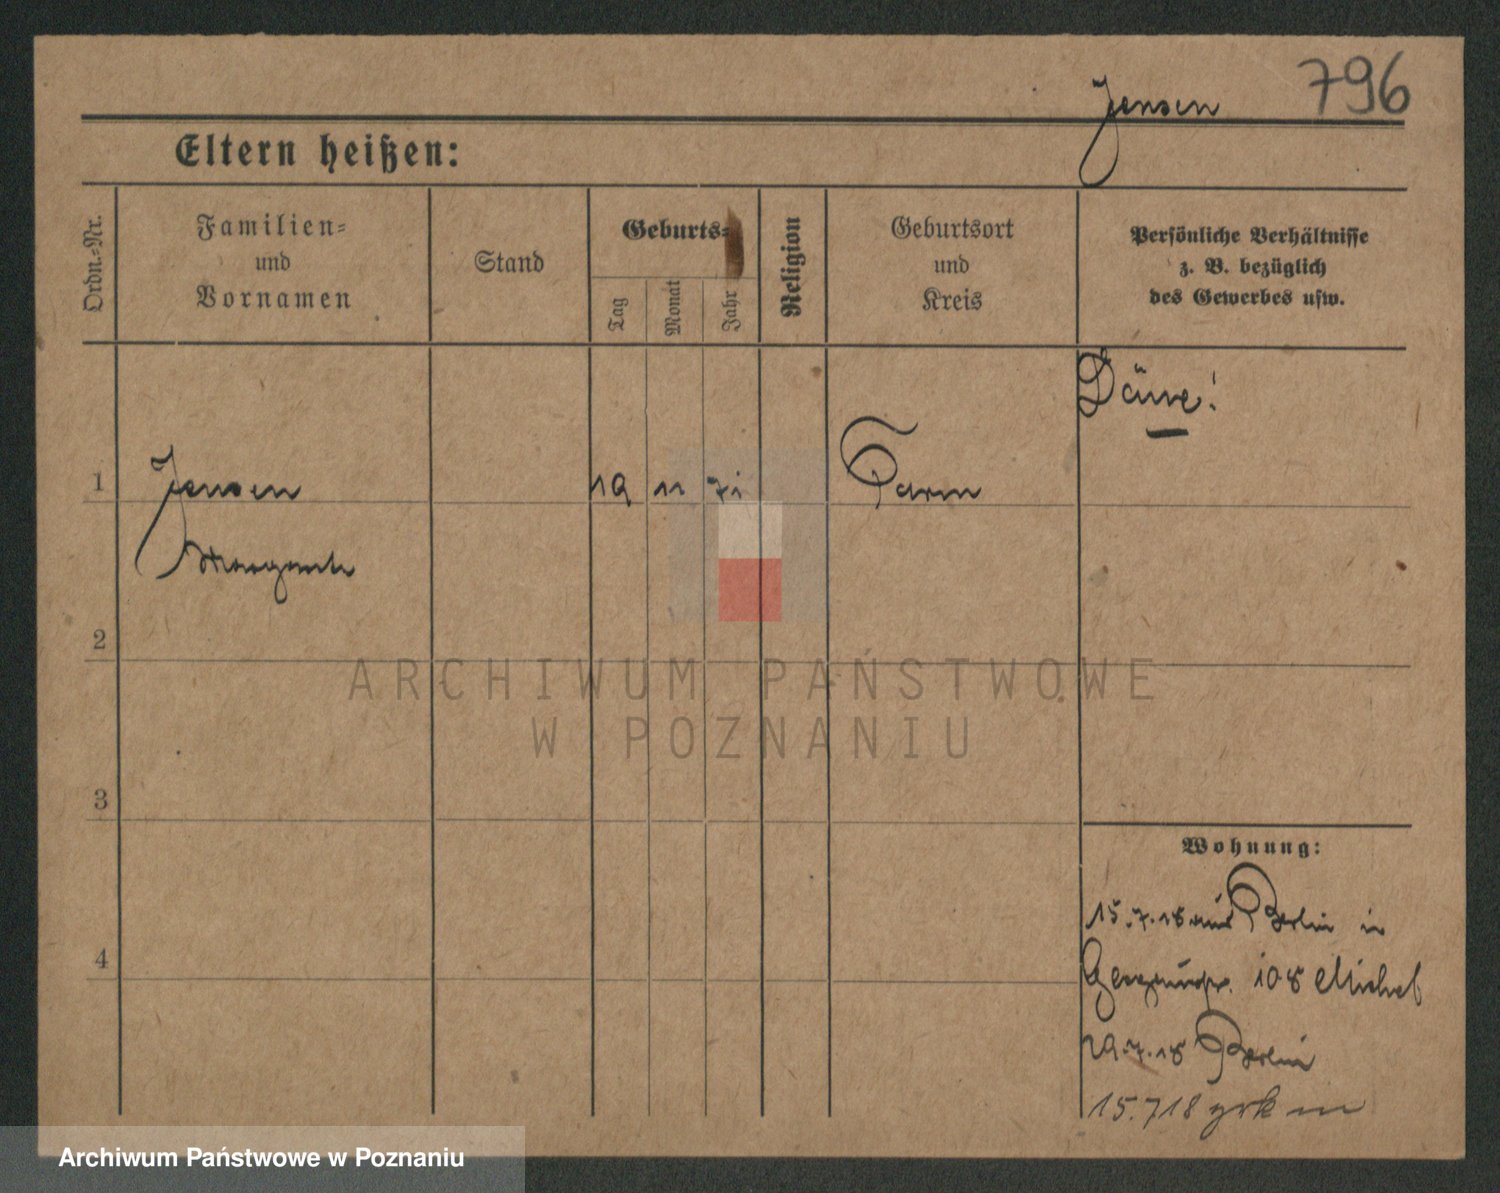 796
Jensen
Eltern heißen:
Ordn.-Nr.
Familien-
und
Vornamen
Stand
Geburts-
Tag
Monat
Jahr
Religion
Geburtsort
und
Kreis
Persönliche Verhältnisse
z. B. bezüglich
des Gewerbes usw.
Däne!
1
Jensen
19 11 71
Farm
2
3
4
Wohnung:
15.7.18 aus Berlin in
108 Michel
29.7.18 Berlin
15.718
ARCHIWUM PAŃSTWOWE
W POZNANIU
Archiwum Państwowe w Poznaniu